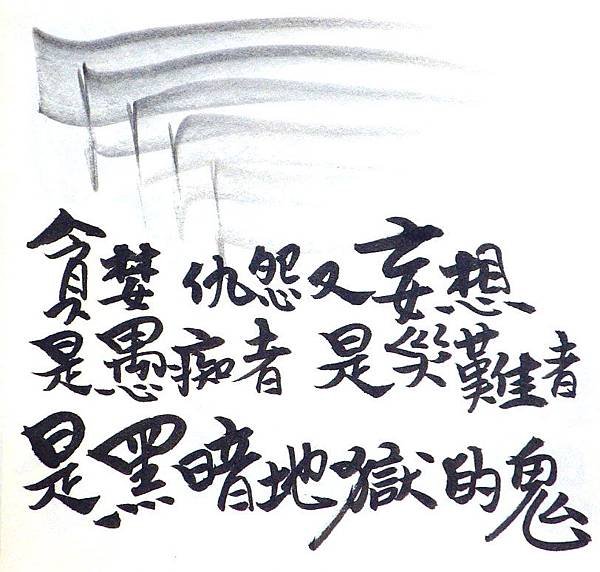 貪婪 仇怨又妄想
是愚痴者 是災難者
是黑暗地獄的鬼